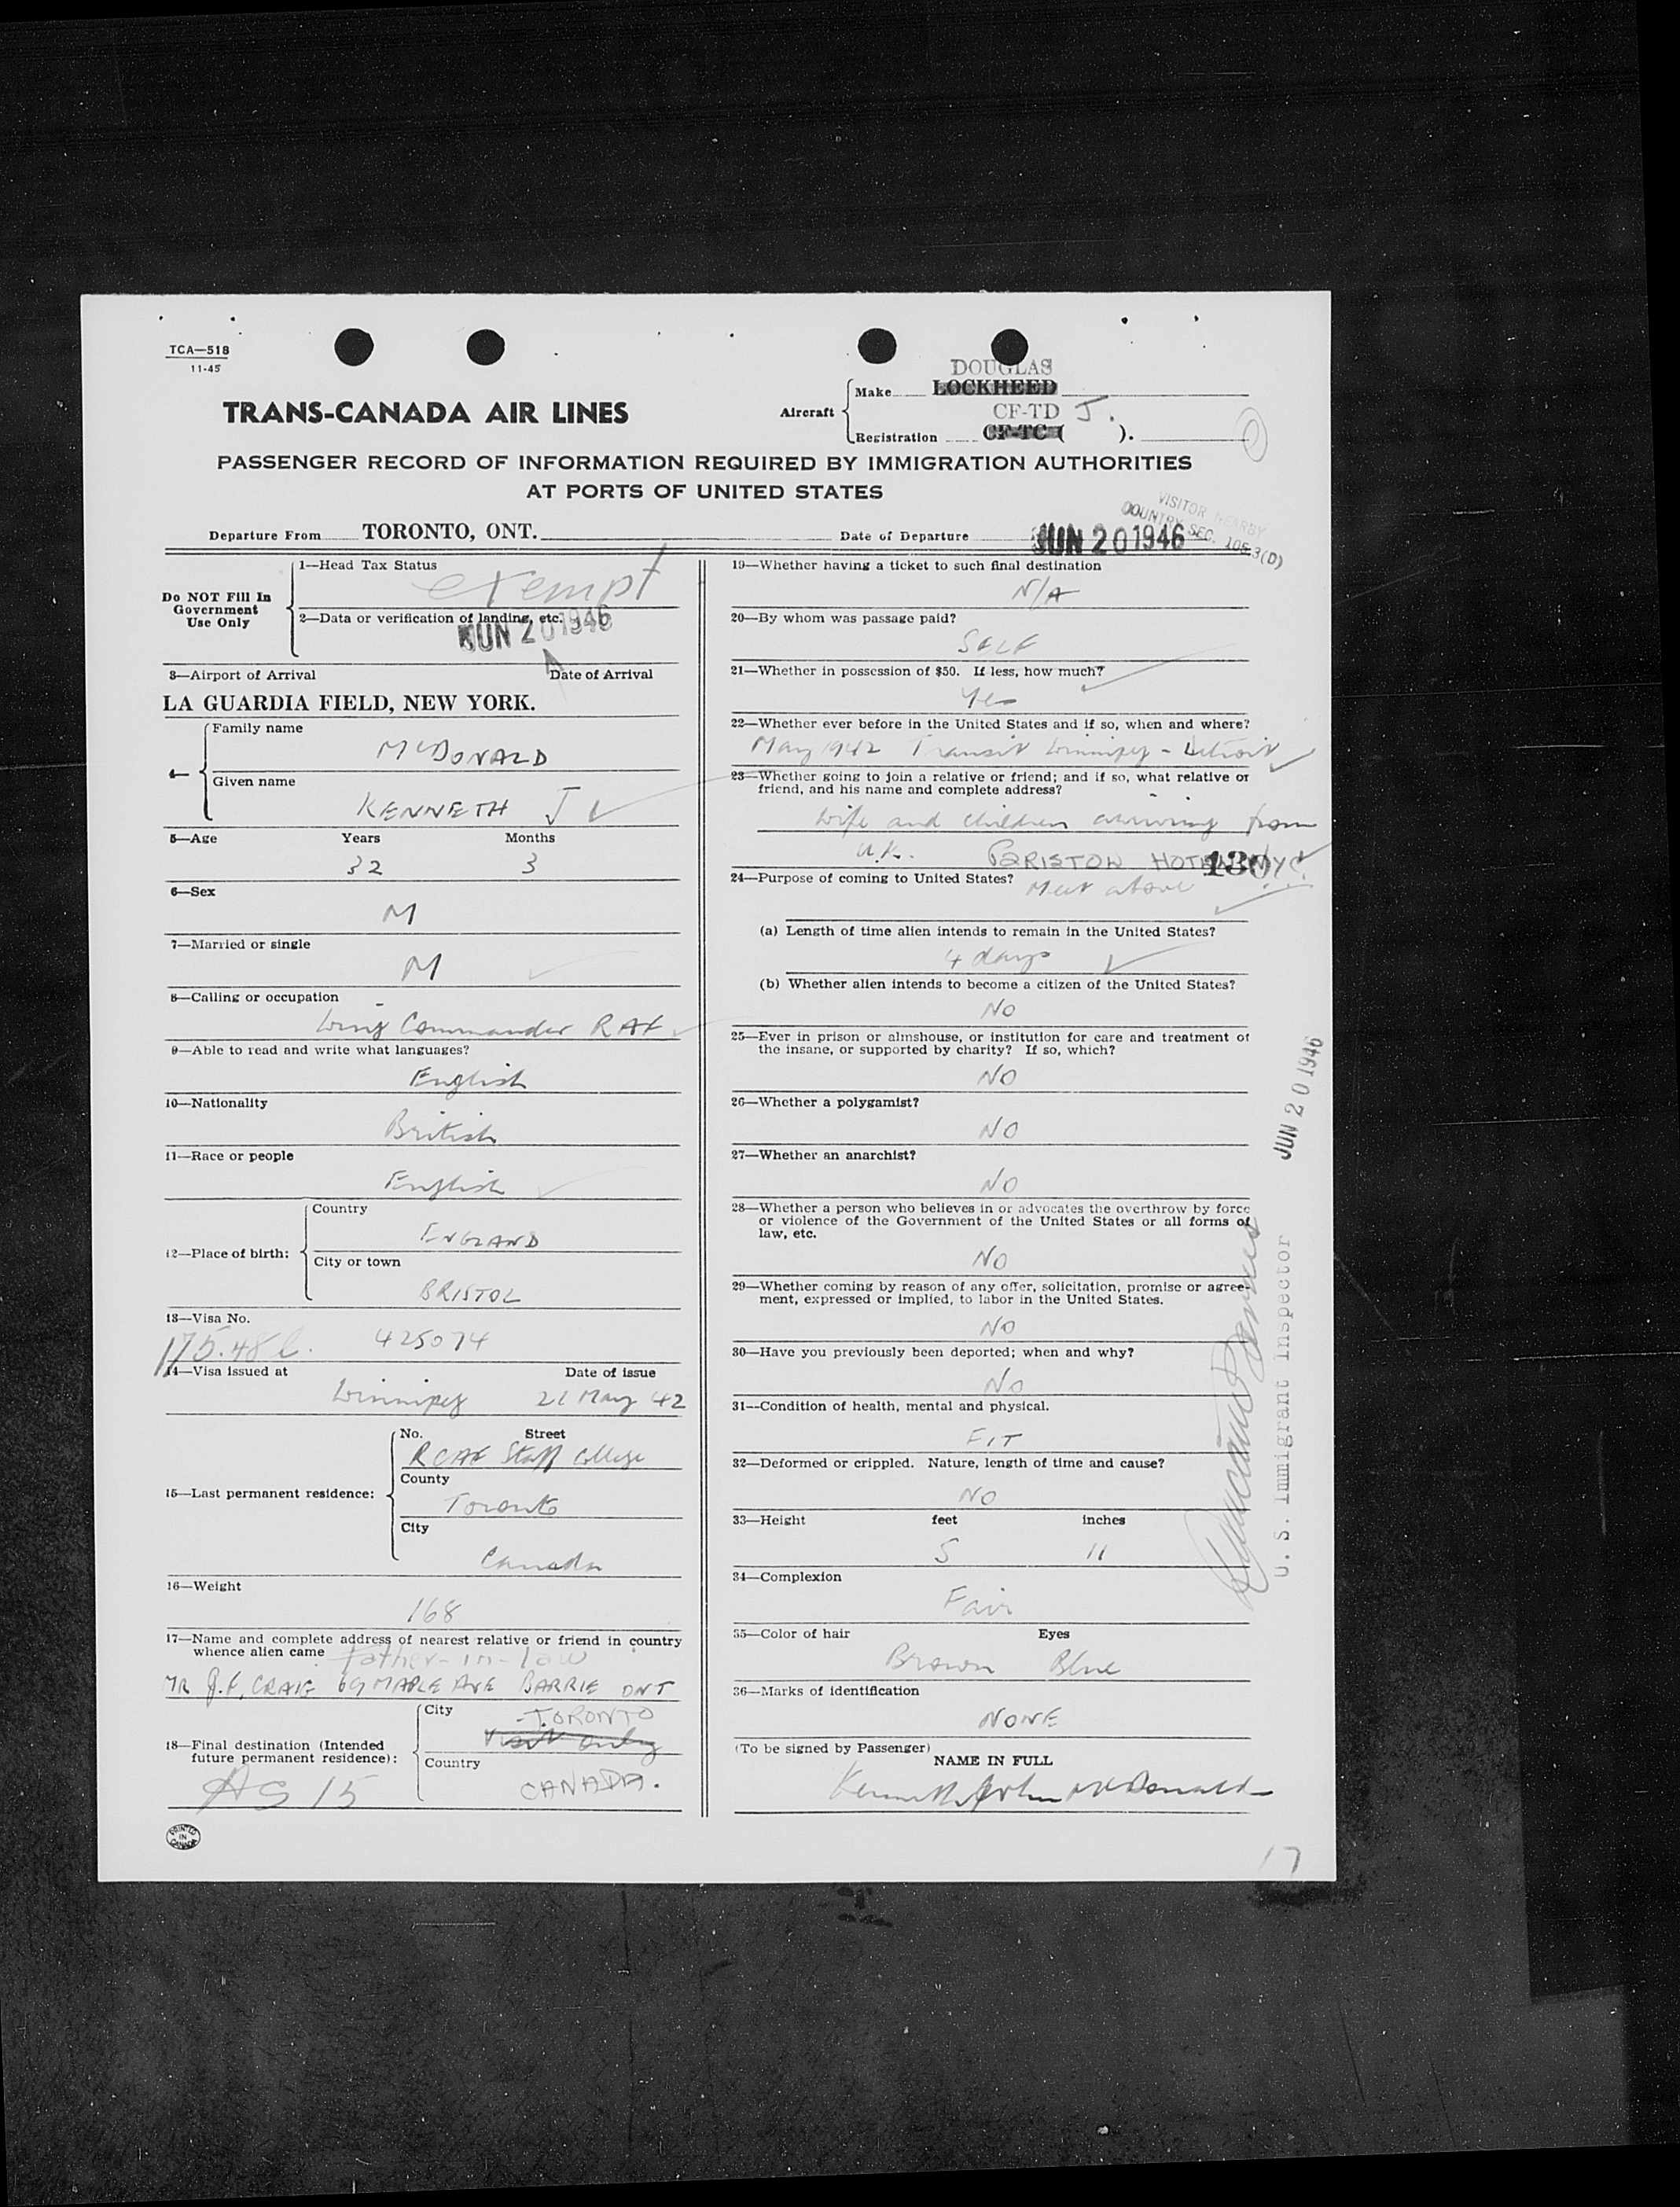 TCA—518
11-45
TRANS-CANADA AIR LINES
Aircraft
Make
DOUGLAS
LOCKHEED
CF-TD J.
Registration CF-TC ( ).
PASSENGER RECORD OF INFORMATION REQUIRED BY IMMIGRATION AUTHORITIES
AT PORTS OF UNITED STATES
VISITOR NEARBY
COUNTRY SEC. 105-3(D)
Departure From TORONTO, ONT. Date of Departure JUN 20 1946
Do NOT Fill In
Government
Use Only
1—Head Tax Status
exempt
2—Data or verification of landing, etc.
JUN 20 1946
3—Airport of Arrival Date of Arrival
LA GUARDIA FIELD, NEW YORK.
4—
Family name
McDONALD
Given name
KENNETH J
5—Age Years Months
32 3
6—Sex
M
7—Married or single
M
8—Calling or occupation
Wing Commander RAF
9—Able to read and write what languages?
English
10—Nationality
British
11—Race or people
English
12—Place of birth:
Country
ENGLAND
City or town
BRISTOL
13—Visa No.
175.48 425074
14—Visa issued at Date of issue
Winnipeg 21 May 42
15—Last permanent residence:
No. Street
RCAF Staff College
County
Toronto
City
Canada
16—Weight
168
17—Name and complete address of nearest relative or friend in country
whence alien came father-in-law
MR J.F. CRAIG 69 MAPLE AVE BARRIE ONT
18—Final destination (Intended
future permanent residence):
City
TORONTO
Visit only
Country
CANADA.
AS 15
PRINTED
IN
CANADA
19—Whether having a ticket to such final destination
N/A
20—By whom was passage paid?
SELF
21—Whether in possession of $50. If less, how much?
Yes
22—Whether ever before in the United States and if so, when and where?
May 1942 Transit Winnipeg - Detroit
23—Whether going to join a relative or friend; and if so, what relative or
friend, and his name and complete address?
Wife and children arriving from
U.K. BRISTOW HOTEL NYC.
130
24—Purpose of coming to United States? Meet above
(a) Length of time alien intends to remain in the United States?
4 days
(b) Whether alien intends to become a citizen of the United States?
NO
25—Ever in prison or almshouse, or institution for care and treatment of
the insane, or supported by charity? If so, which?
NO
26—Whether a polygamist?
NO
27—Whether an anarchist?
NO
28—Whether a person who believes in or advocates the overthrow by force
or violence of the Government of the United States or all forms of
law, etc.
NO
29—Whether coming by reason of any offer, solicitation, promise or agree-
ment, expressed or implied, to labor in the United States.
NO
30—Have you previously been deported; when and why?
No
31—Condition of health, mental and physical.
FIT
32—Deformed or crippled. Nature, length of time and cause?
NO
33—Height feet inches
5 11
34—Complexion
Fair
35—Color of hair Eyes
Brown Blue
36—Marks of identification
NONE
(To be signed by Passenger)
NAME IN FULL
Kenneth John McDonald
JUN 20 1946
U. S. Immigrant Inspector
17